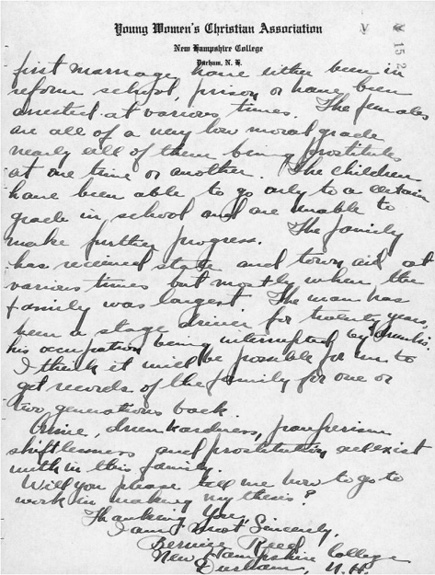 Young Women's Christian Association
New Hampshire College
Durham, N. H.
V V 15 2
first marriage have either been in
reform school, prison or have been
arrested at various times. The females
are all of a very low moral grade
nearly all of them being prostitutes
at one time or another. The children
have been able to go only to a certain
grade in school and are unable to
make further progress. The family
has received state and town aid at
various times but mostly when the
family was largest. The man has
been a stage driver for twenty years,
his occupation being interrupted by drunks.
I think it will be possible for me to
get records of the family for one or
two generations back.
Crime, drunkardness, pauperism
shiftlessness and prostitution all exist
with in this family.
Will you please tell me how to go to
work in making my thesis?
Thanking You,
I am Most Sincerely,
Bernice Reed
New Hampshire College
Durham, N.H.